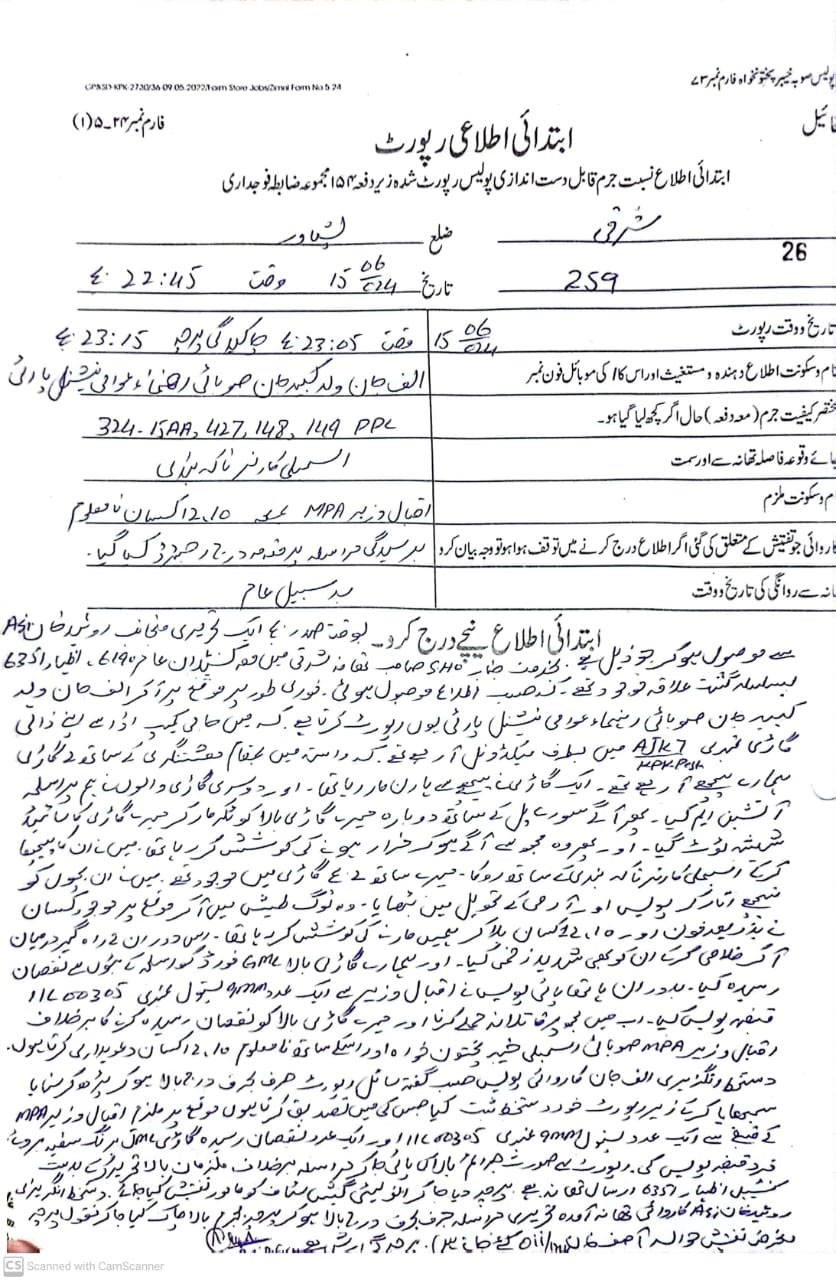 GP&SD-KPK-2730/36-09.05.2022/Form Store Jobs/Zimni Form No.5.24
پولیس صوبہ خیبر پختونخواہ فارم نمبر ۷۳
فائیل
فارم نمبر ۲۴۔۵(۱)
ابتدائی اطلاعی رپورٹ
ابتدائی اطلاع نسبت جرم قابل دست اندازی پولیس رپورٹ شدہ زیر دفعہ ۱۵۴ مجموعہ ضابطہ فوجداری
شرقی ضلع پشاور
26
259 تاریخ 15 06/024 وقت 22:45
تاریخ و وقت رپورٹ 15 06/024 وقت 23:05 چاکیدگی پرچہ 23:15
نام و سکونت اطلاع دہندہ و مستغیث اور اس کا / کی موبائل فون نمبر الف جان ولد کبیر جان صوبائی رہنماء عوامی نیشنل پارٹی
مختصر کیفیت جرم (معہ دفعہ) حال اگر کچھ لیا گیا ہو۔ 324-15AA, 427, 148, 149 PPC
جائے وقوعہ فاصلہ تھانہ سے اور سمت اسمبلی کارنر ناکہ بندی
نام و سکونت ملزم اقبال وزیر MPA معہ 12،10 کسان نامعلوم
کاروائی جو تفتیش کے متعلق کی گئی اگر اطلاع درج کرنے میں توقف ہوا ہو تو وجہ بیان کرو برسیدگی مراسلہ پر مقدمہ درج رجسٹر کیا گیا۔
تھانہ سے روانگی کی تاریخ و وقت بسبیل عام
ابتدائی اطلاع نیچے درج کرو۔ بوقت صدر ایک تحریری منجانب روشید خان ASI
سے موصول ہوکر جو ذیل ہے۔ بخدمت جناب SHO صاحب تھانہ شرقی میں معہ کنسٹیبلان عامر 6190، اظہار 6351
بسلسلہ گشت علاقہ موجود تھے۔ کہ حسب اطلاع موصول ہوئی۔ فوری طور پر موقع پر آکر الف جان ولد
کبیر جان صوبائی رہنماء عوامی نیشنل پارٹی یوں رپورٹ کرتا ہے کہ میں حاجی کیمپ اڈا سے اپنے ذاتی
گاڑی نمبری AJK7 KPK.Pesh میں بطرف میکڈونل آ رہے تھے کہ راستہ میں بمقام ہشتنگری کے ساتھ 2 گاڑی
ہمارے پیچھے آ رہے تھے۔ ایک گاڑی نے پیچھے سے ہارن مار رہا تھا۔ اور دوسری گاڑی والوں نے ہم پر اسلحہ
آتشین ایم کیا۔ پھر آگے سورے پل کے ساتھ دوبارہ میرے گاڑی بالا کو ٹکر مار کر میرے گاڑی کا سائیڈ
شیشہ ٹوٹ گیا۔ اور پھر وہ مجھ سے آگے ہوکر فرار ہونے کی کوشش کر رہا تھا۔ میں نے ان کا پیچھا
کرکے اسمبلی کارنر ناکہ بندی کے ساتھ روکا۔ میرے ساتھ گاڑی میں موجود تھے۔ میں نے ان بچوں کو
نیچے اتار کر پولیس اور آرمی کے تحویل میں بٹھایا۔ وہ لوگ طیش میں آکر موقع پر موجود کسان
نے بذریعہ فون اور 12،10 کسان بلا کر ہمیں مارنے کی کوشش کر رہا تھا۔ اسی دوران 2 راہ گیر درمیان
آکر خلاصی کرکے ان کو بھی شدید زخمی کیا۔ اور ہمارے گاڑی بالا GMC فورڈ کو اسلحہ کے بٹوں سے نقصان
رسیدہ کیا۔ بدوران ہاتھا پائی پولیس نے اقبال وزیر سے ایک عدد 9MM پستول نمبری 11C00305
قبضہ پولیس کیا۔ اب میں مجھ پر قاتلانہ حملے کرنا اور میرے گاڑی بالا کو نقصان رسیدہ کرنے کا برخلاف
اقبال وزیر MPA صوبائی اسمبلی خیبر پختون خواہ اور اسکے ساتھ نامعلوم 12،10 کسان دعویداری کرتا ہوں۔
دستخط انگریزی الف جان کاروائی پولیس حسب گفتہ سائل رپورٹ حرف بحرف درج بالا ہوکر پڑھ کر سنایا
سمجھایا کرکے زیر رپورٹ خود دستخط ثبت کیا جس کی میں تصدیق کرتا ہوں موقع پر ملزم اقبال وزیر MPA
کے قبضے سے ایک عدد پستول 9MM نمبری 11C00305 اور ایک عدد نقصان رسیدہ گاڑی GMC برنگ سفید بروئے
فرد قبضہ پولیس کی۔ رپورٹ سے صورت جرائم بالا کی پائی جاکر مراسلہ برخلاف ملزمان بالا تحریر کرکے بدست
کنسٹیبل اظہار 6351 ارسال تھانہ ہے۔ پرچہ دیا جاکر انوسٹی گیشن سٹاف کو مامور تفتیش کیا جائے۔ دستخط انگریزی
روشید خان ASI کاروائی تھانہ آمدہ تحریری مراسلہ حرف بحرف درج بالا ہوکر پرچہ بجرم بالا چاک کیا جاکر نقول پرچہ
بغرض تفتیش حوالہ آصف خان OII کئے جاتے ہیں۔ پرچہ گزارش ہے
CS Scanned with CamScanner